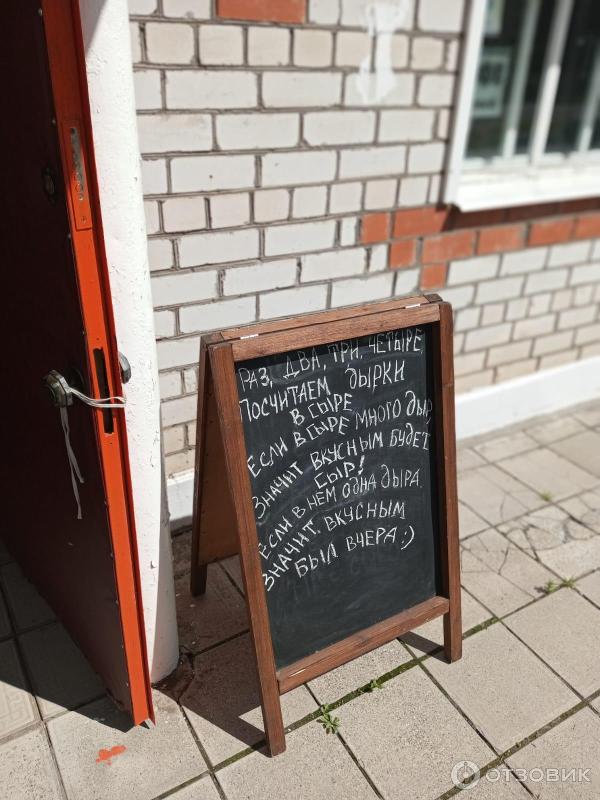 РАЗ, ДВА, ТРИ, ЧЕТЫРЕ,
ПОСЧИТАЕМ ДЫРКИ
В СЫРЕ
ЕСЛИ В СЫРЕ МНОГО ДЫР
ЗНАЧИТ ВКУСНЫМ БУДЕТ
СЫР!
ЕСЛИ В НЕМ ОДНА ДЫРА
ЗНАЧИТ ВКУСНЫМ
БЫЛ ВЧЕРА :)
ОТЗОВИК